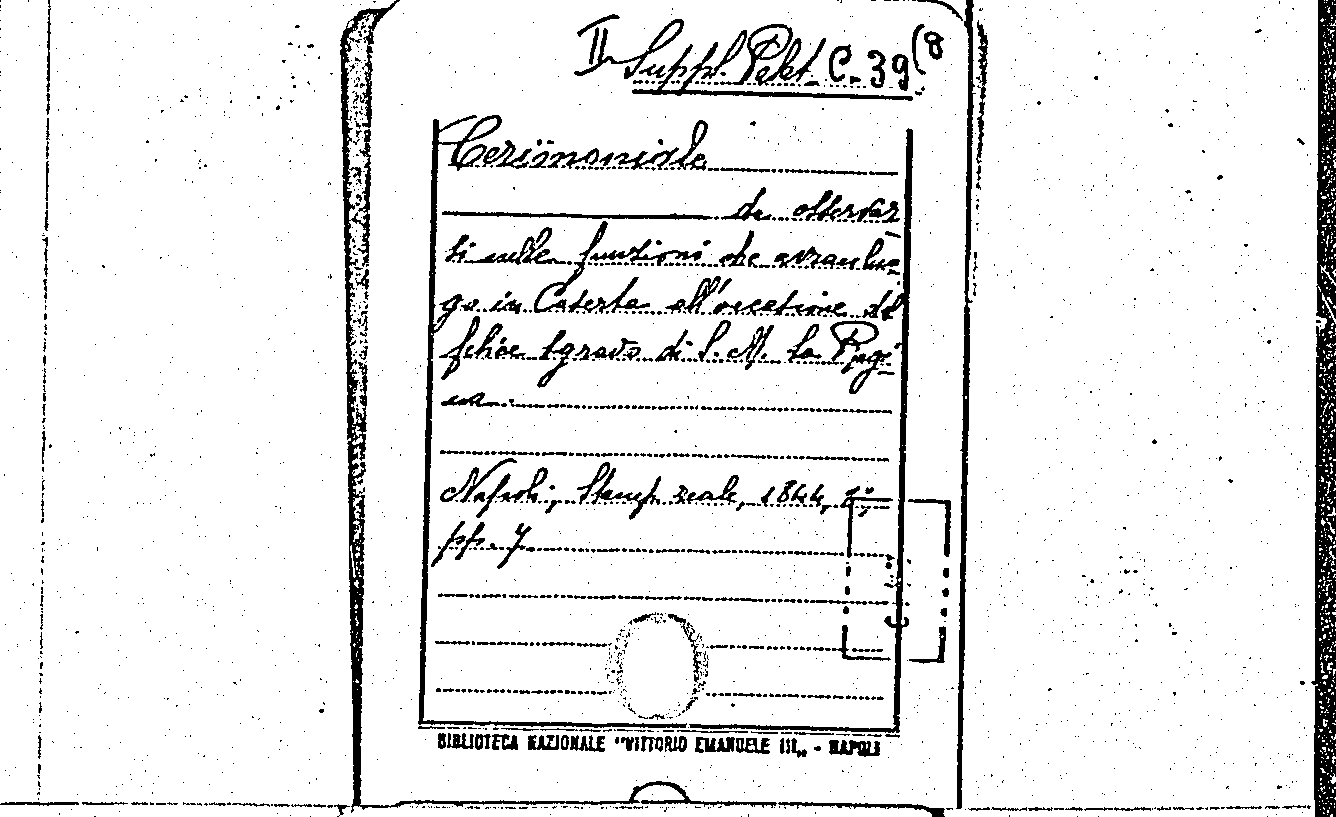 II Suppl. Palat. C. 39(8
Cerimoniale
da osservar
si nelle funzioni che avran luo-
go in Caserta all'occasione del
felice sgravo di S. M. la Regi-
na.
Napoli, Stamp. reale, 1844,
pp. 7.
BIBLIOTECA NAZIONALE "VITTORIO EMANUELE III„ - NAPOLI